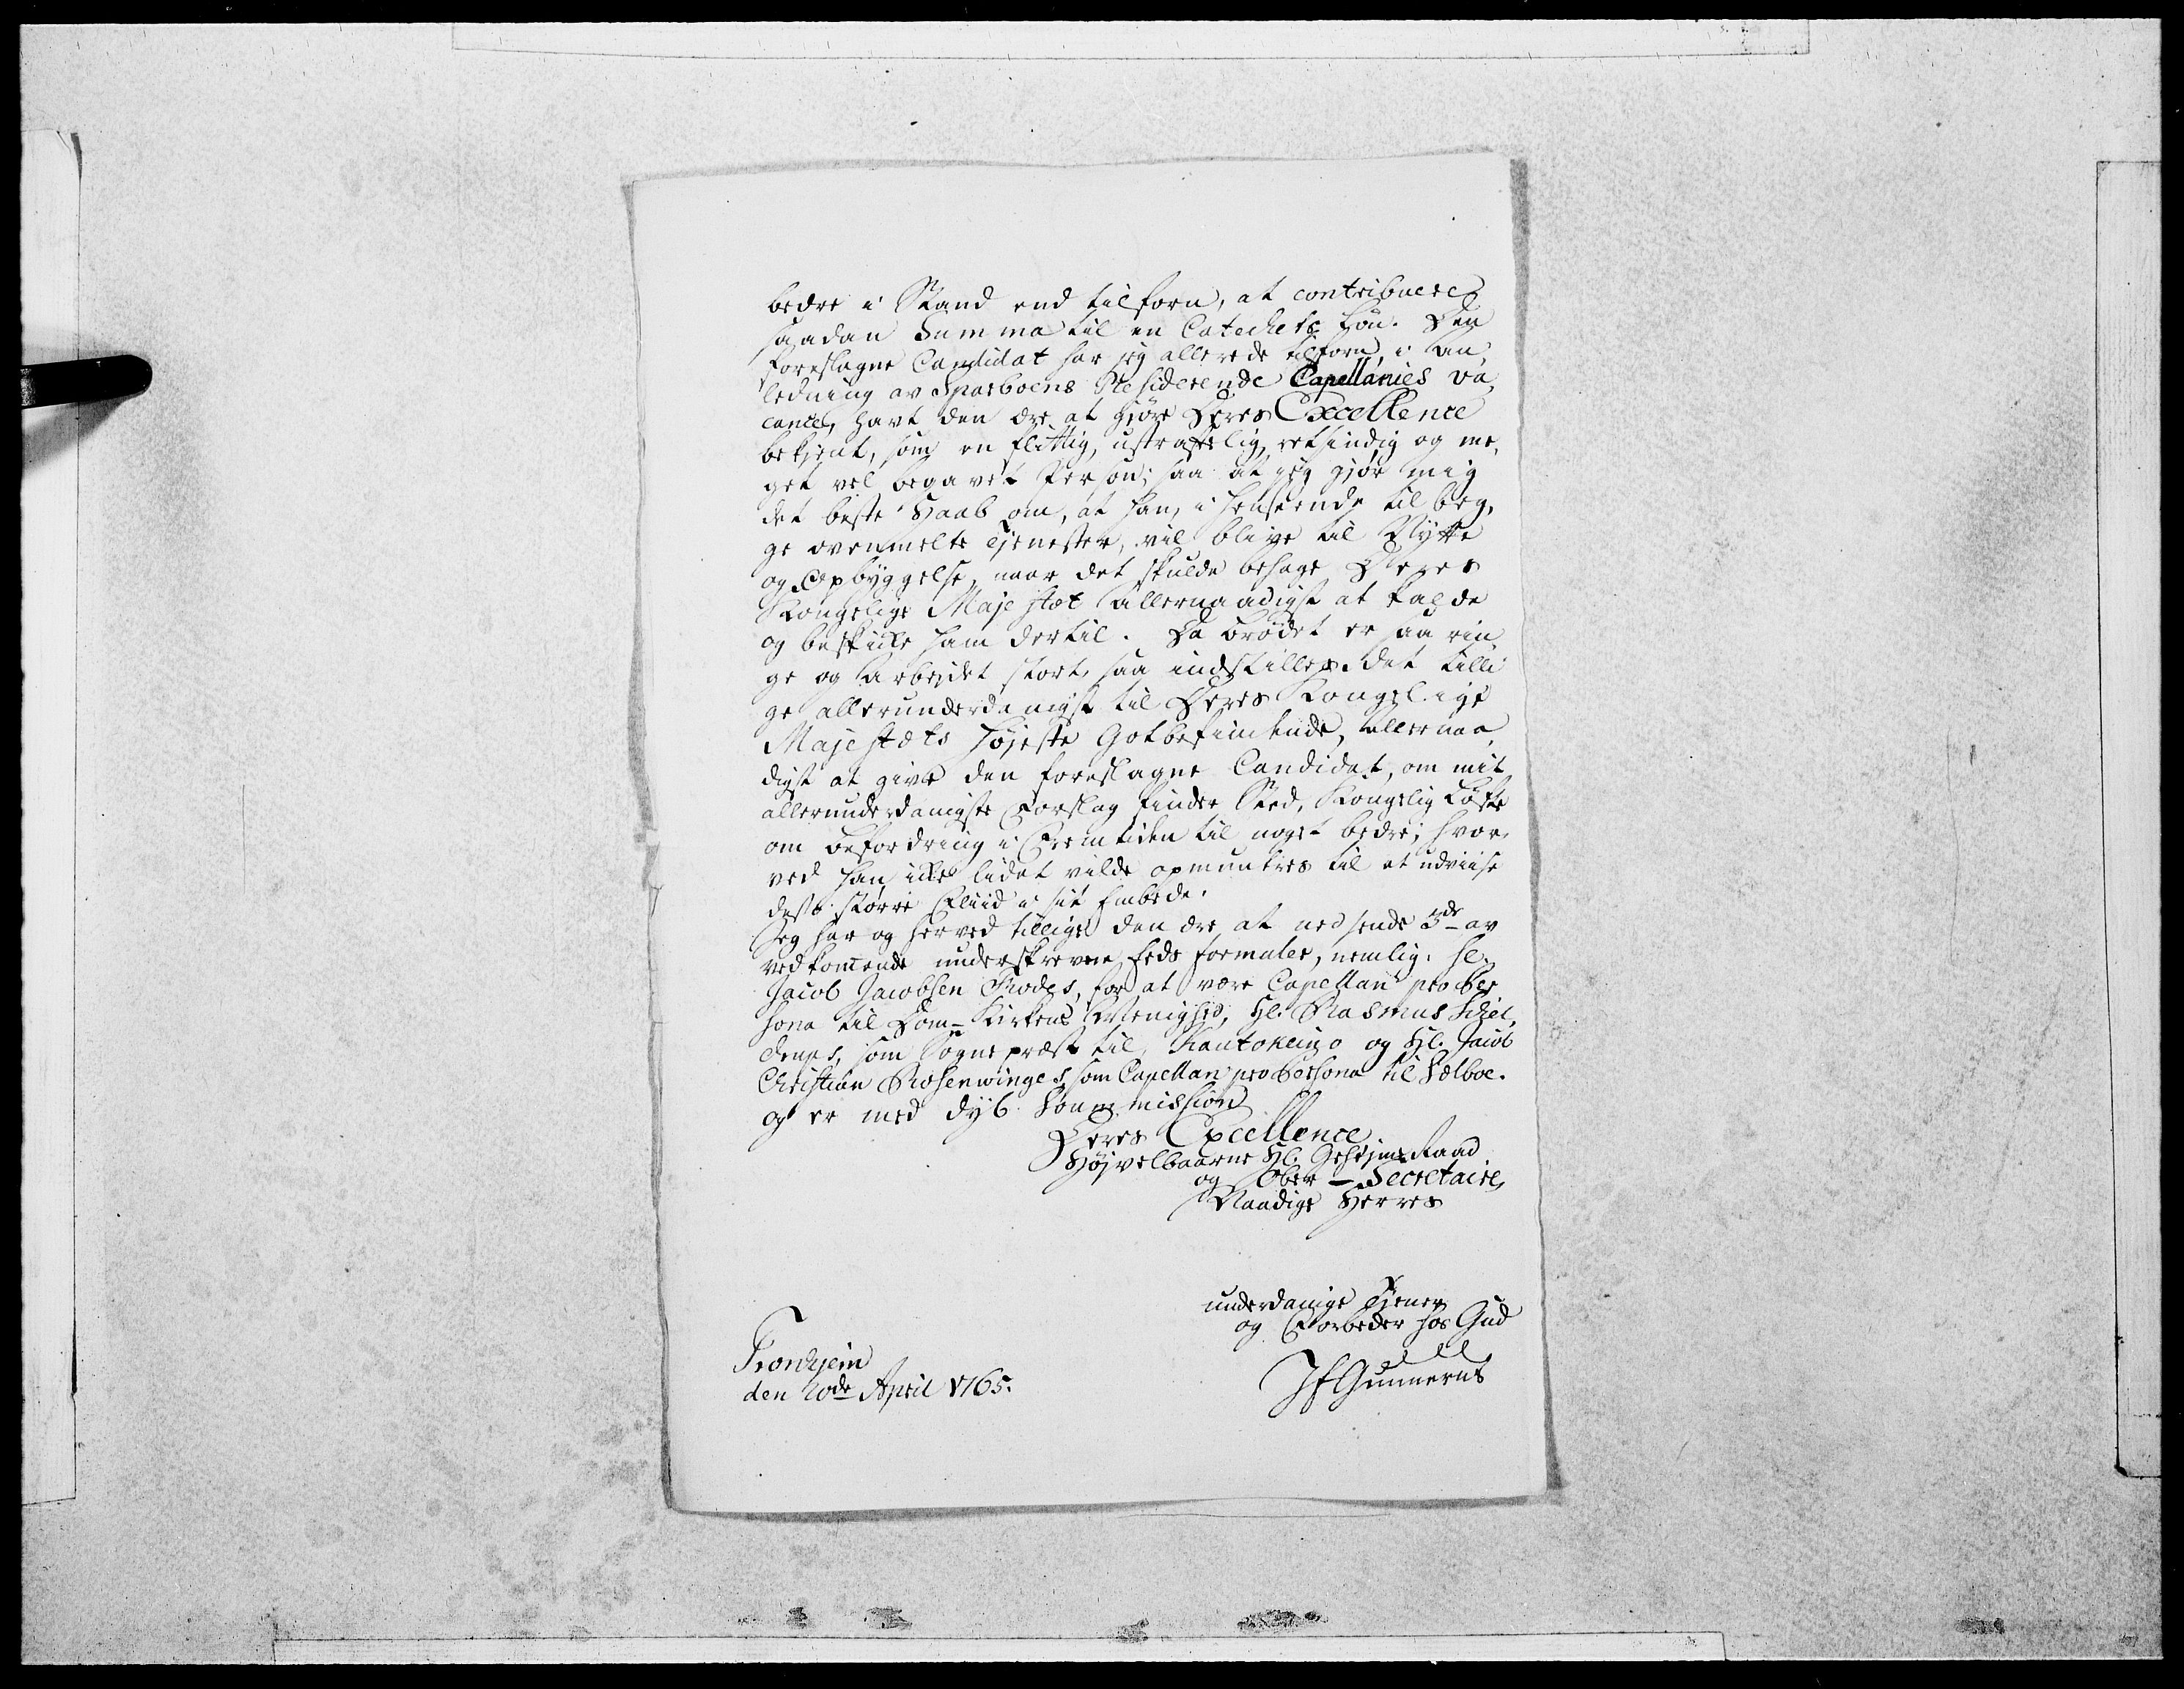 bedre i Stand end tilforn, at contribuere
saadan Summa til en Catechets Løn. Den
foreslagne Candidat har jeg allerede tilforn, i An-
ledning av Sparboens Residerende Capellanies va-
cance, havt den Ære at gjøre Deres Excellence
bekjent, som en flittig, ustraffelig, retsindig og me-
get vel begavet Person; saa at jeg gjør mig
det beste Haab om, at han, i Henseende til beg-
ge ovenmelte Tjenester, vil blive til Nytte
og Opbyggelse, naar det skulde behage Deres
Kongelige Majestæt allernaadigst at kalde
og beskikke ham dertil. Da Brødet er saa rin-
ge og Arbejdet stort, saa indstilles det tilli-
ge allerunderdanigst til Deres Kongelige
Majestæts Højeste Gotbefindende, allernaa-
digst at give den foreslagne Candidat, om mit
allerunderdanigste Forslag finder Sted, Kongelig Løfte
om Befordring i Fremtiden til noget bedre; hvor-
ved han ikke lidet vilde opmuntres til at udviise
desto større Fliid i sit Embede.
Jeg har og herved tillige den Ære at nedsende 3de av
vedkomende underskrevne Eeds formuler, nemlig: Hr.
Jacob Jacobsen Rodes, for at være Capellan pro Per-
sona til Dom-Kirkens Menighed, Hr. Rasmus Schiel-
derups, som Sognepræst til Kautokeino og Hr. Jacob
Christian Rosenwinges som Capellan pro Persona til Sælboe.
og er med dyb Soummission
Deres Excellence
Højvelbaarne Hr. Geheime Raad
og Ober-Secretaire,
Naadige Herres
underdanige Tjener
og Forbeder hos Gud
Tronhjem
den 20de April 1765.
JfGunnerus